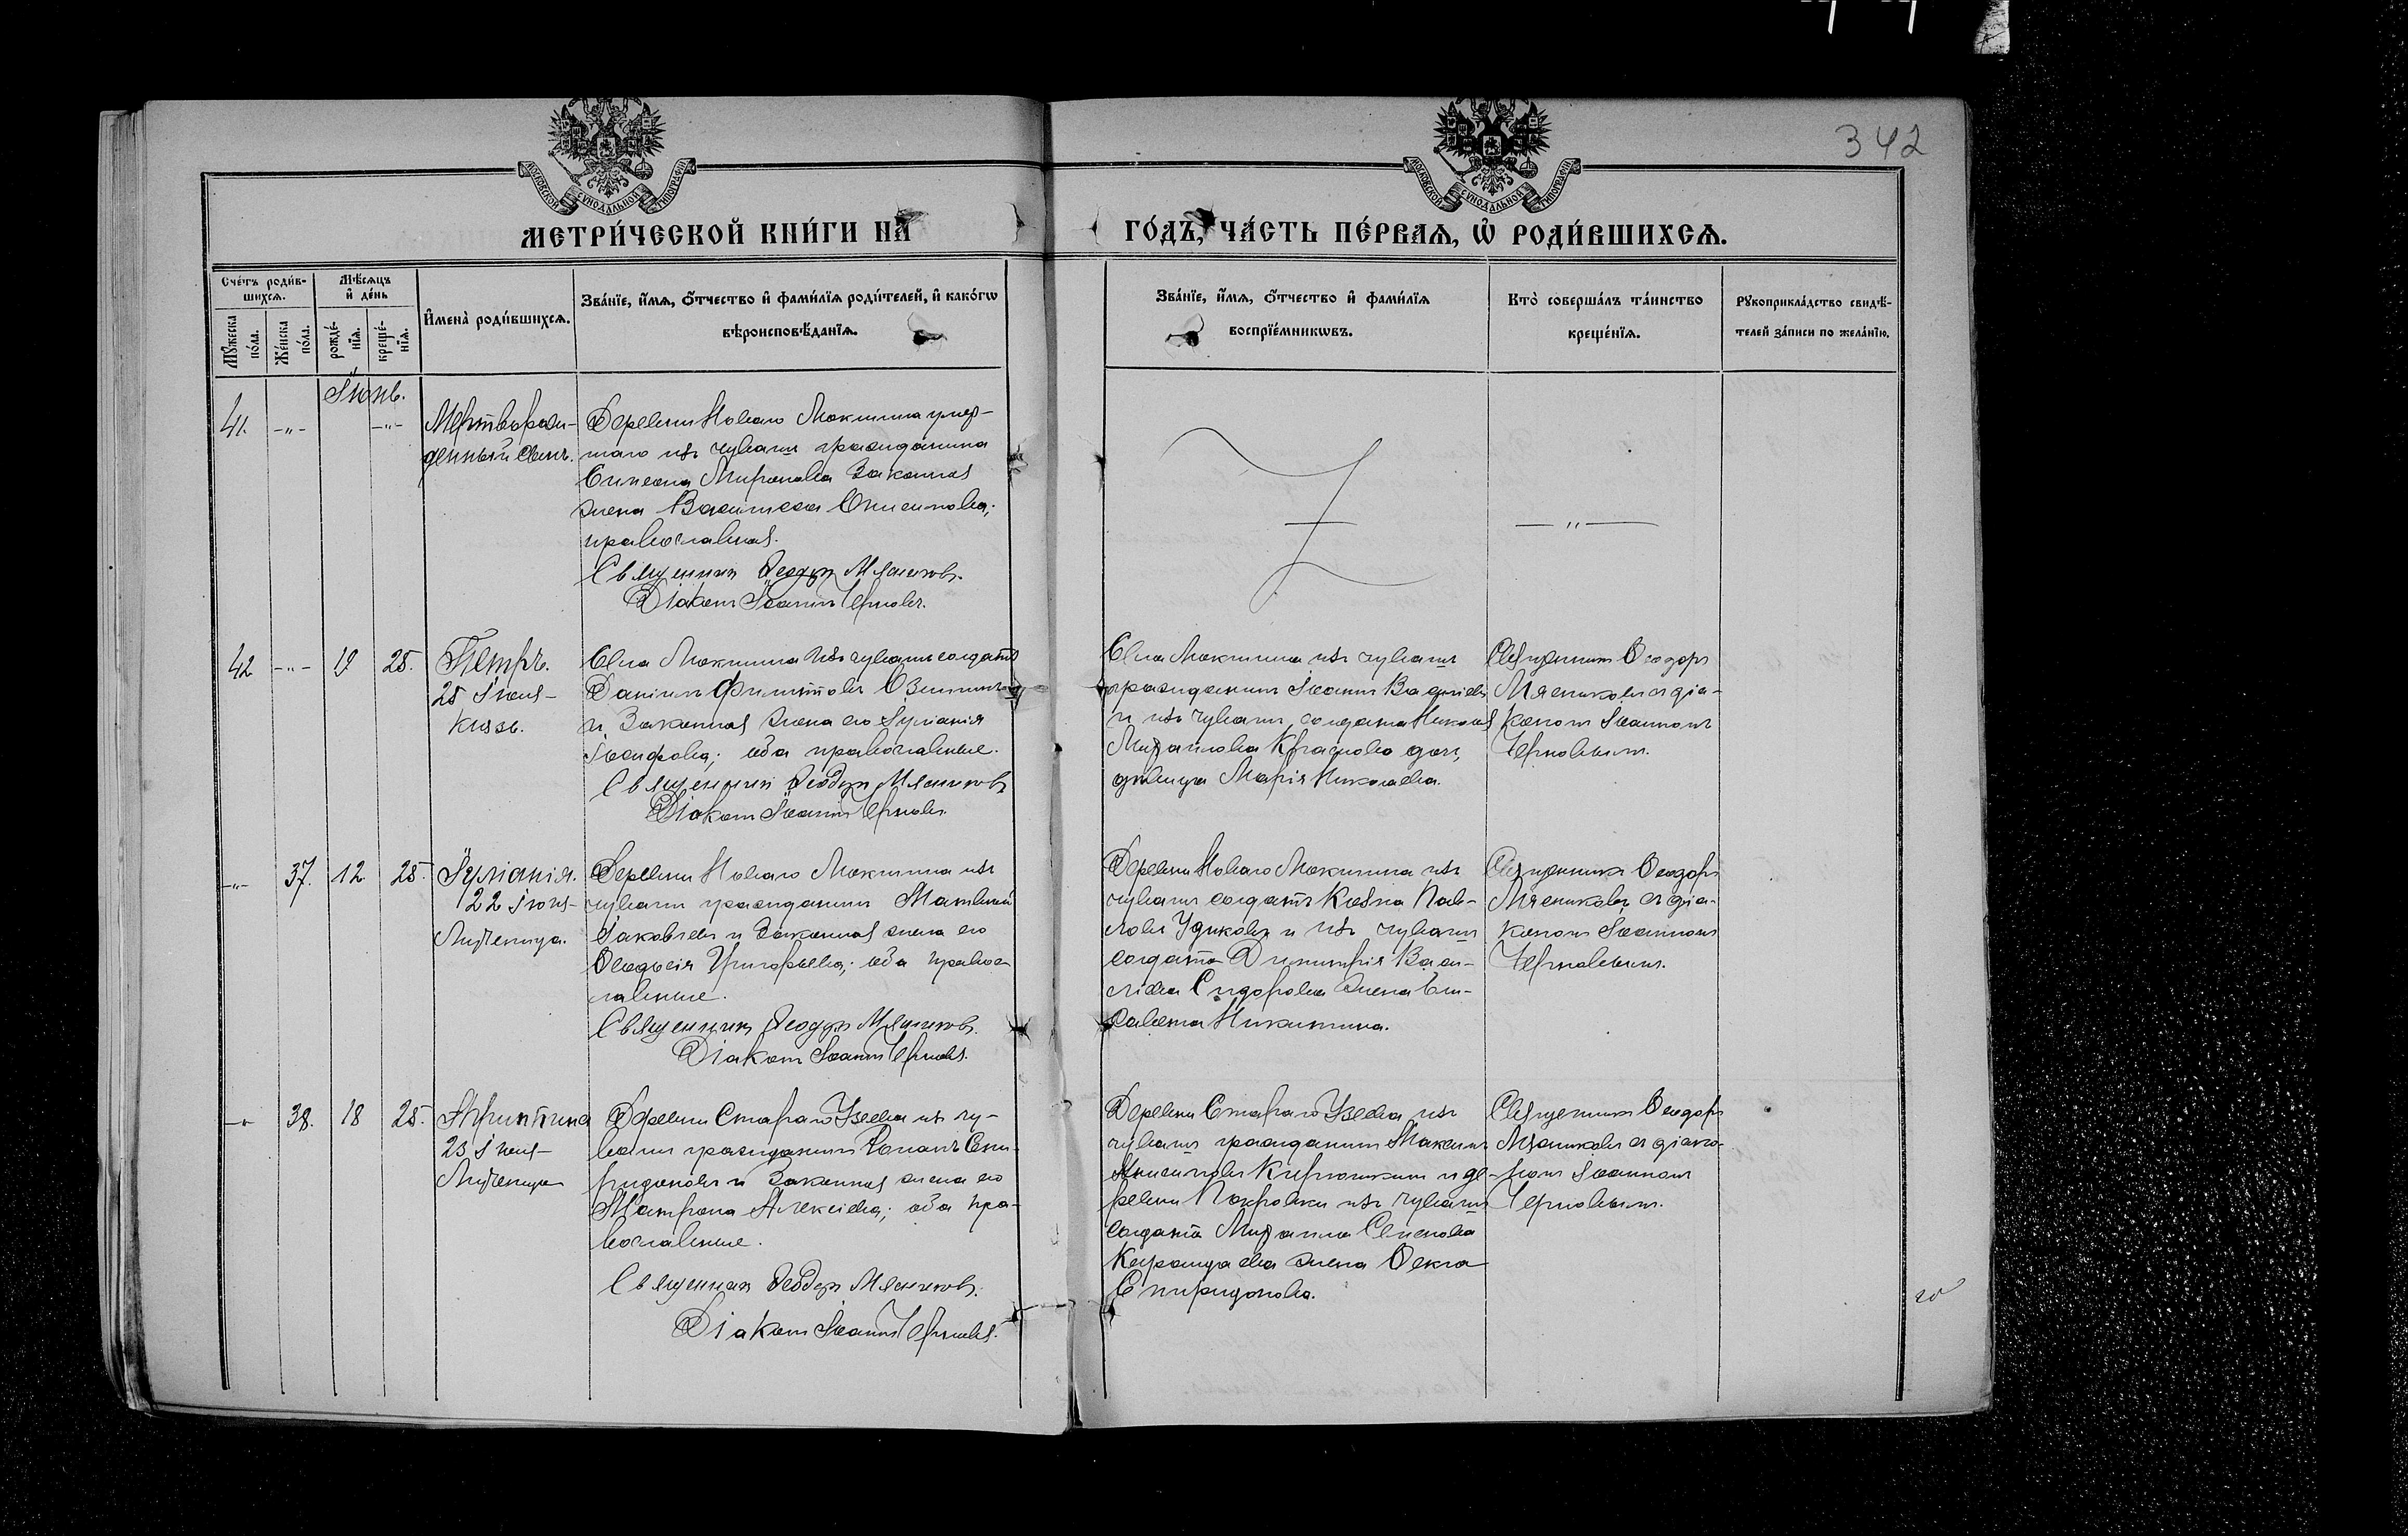 342
МОСКОВСКОЙ СѴНОДАЛЬНОЙ ТИПОГРАФІИ
МОСКОВСКОЙ СѴНОДАЛЬНОЙ ТИПОГРАФІИ
МЕТРИ́ЧЕСКОЙ КНИ́ГИ НА̀
ГО́ДЪ, ЧА́СТЬ ПЕ́РВАѦ, Ѡ҆ РОДИ́ВШИХСѦ.
Сче́тъ роди́в-
шихсѧ.
Мꙋ́жеска по́ла.
Же́нска по́ла.
Мѣ́сѧцъ
и҆ де́нь
рожде́-
нїѧ.
креще́-
нїѧ.
И҆мена̀ роди́вшихсѧ.
Зва́нїе, и҆́мѧ, ѻ҆́тчество и҆ фами́лїѧ роди́телей, и҆ како́гѡ
вѣроисповѣ́данїѧ.
Зва́нїе, и҆́мѧ, ѻ҆́тчество и҆ фами́лїѧ
воспрїе́мникѡвъ.
Кто̀ соверша́лъ та́инство
креще́нїѧ.
Рꙋкоприкла́дство свидѣ́-
телей за́писи по жела́нїю.
Іюнь.
41. -"- -"-
Мертворож-
денный сынъ.
Деревни Новаго Мокшина умер-
шаго изъ чувашъ гражданина
Симеона Миронова законная
жена Васса Онисимова;
православная.
Священникъ Ѳеодоръ Мясниковъ.
Діаконъ Іоаннъ Черновъ.
— " —
42 -"- 19 25.
Петръ.
25 Іюня-
князь.
Села Мокшина изъ чувашъ солдатъ
Даніилъ Филипповъ
и законная жена его Іуліанія
Іосифова; оба православные.
Священникъ Ѳеодоръ Мясниковъ
Діаконъ Іоаннъ Черновъ.
Села Мокшина изъ чувашъ
гражданинъ Іоаннъ Васильевъ
и изъ чувашъ солдата Николая
Михайлова Краснова дочь,
дѣвица Марія Николаева.
Священникъ Ѳеодоръ
Мясниковъ съ діа-
кономъ Іоанномъ
Черновымъ.
-"- 37. 12 25.
Іуліанія.
22 Іюня-
Мученица.
Деревни Новаго Мокшина изъ
чувашъ гражданинъ Матвей
Іаковлевъ и законная жена его
Ѳеодосія Григорьева; оба право-
славные.
Священникъ Ѳеодоръ Мясниковъ.
Діаконъ Іоаннъ Черновъ.
Деревни Новаго Мокшина изъ
чувашъ солдатъ Козма Пав-
ловъ Удиковъ и изъ чувашъ
солдата Димитрія Васи-
лiева Сидорова жена Ели-
савета Никитина.
Священникъ Ѳеодоръ
Мясниковъ съ діа-
кономъ Іоанномъ
Черновымъ.
-"- 38. 18 25.
Агриппина
23 Іюня-
Мученица
Деревни Стараго Узеева изъ чу-
вашъ гражданинъ Романъ Спи-
ридоновъ и законная жена его
Матрона Алексіева; оба пра-
вославные.
Священникъ Ѳеодоръ Мясниковъ.
Діаконъ Іоаннъ Черновъ.
Деревни Стараго Узеева изъ
чувашъ гражданинъ Максимъ
Анисимовъ Кирюшкинъ и де-
ревни Покровки изъ чувашъ
солдата Михаила Семенова
жена Ѳекла
Спиридонова.
Священникъ Ѳеодоръ
Мясниковъ съ діако-
номъ Іоанномъ
Черновымъ.